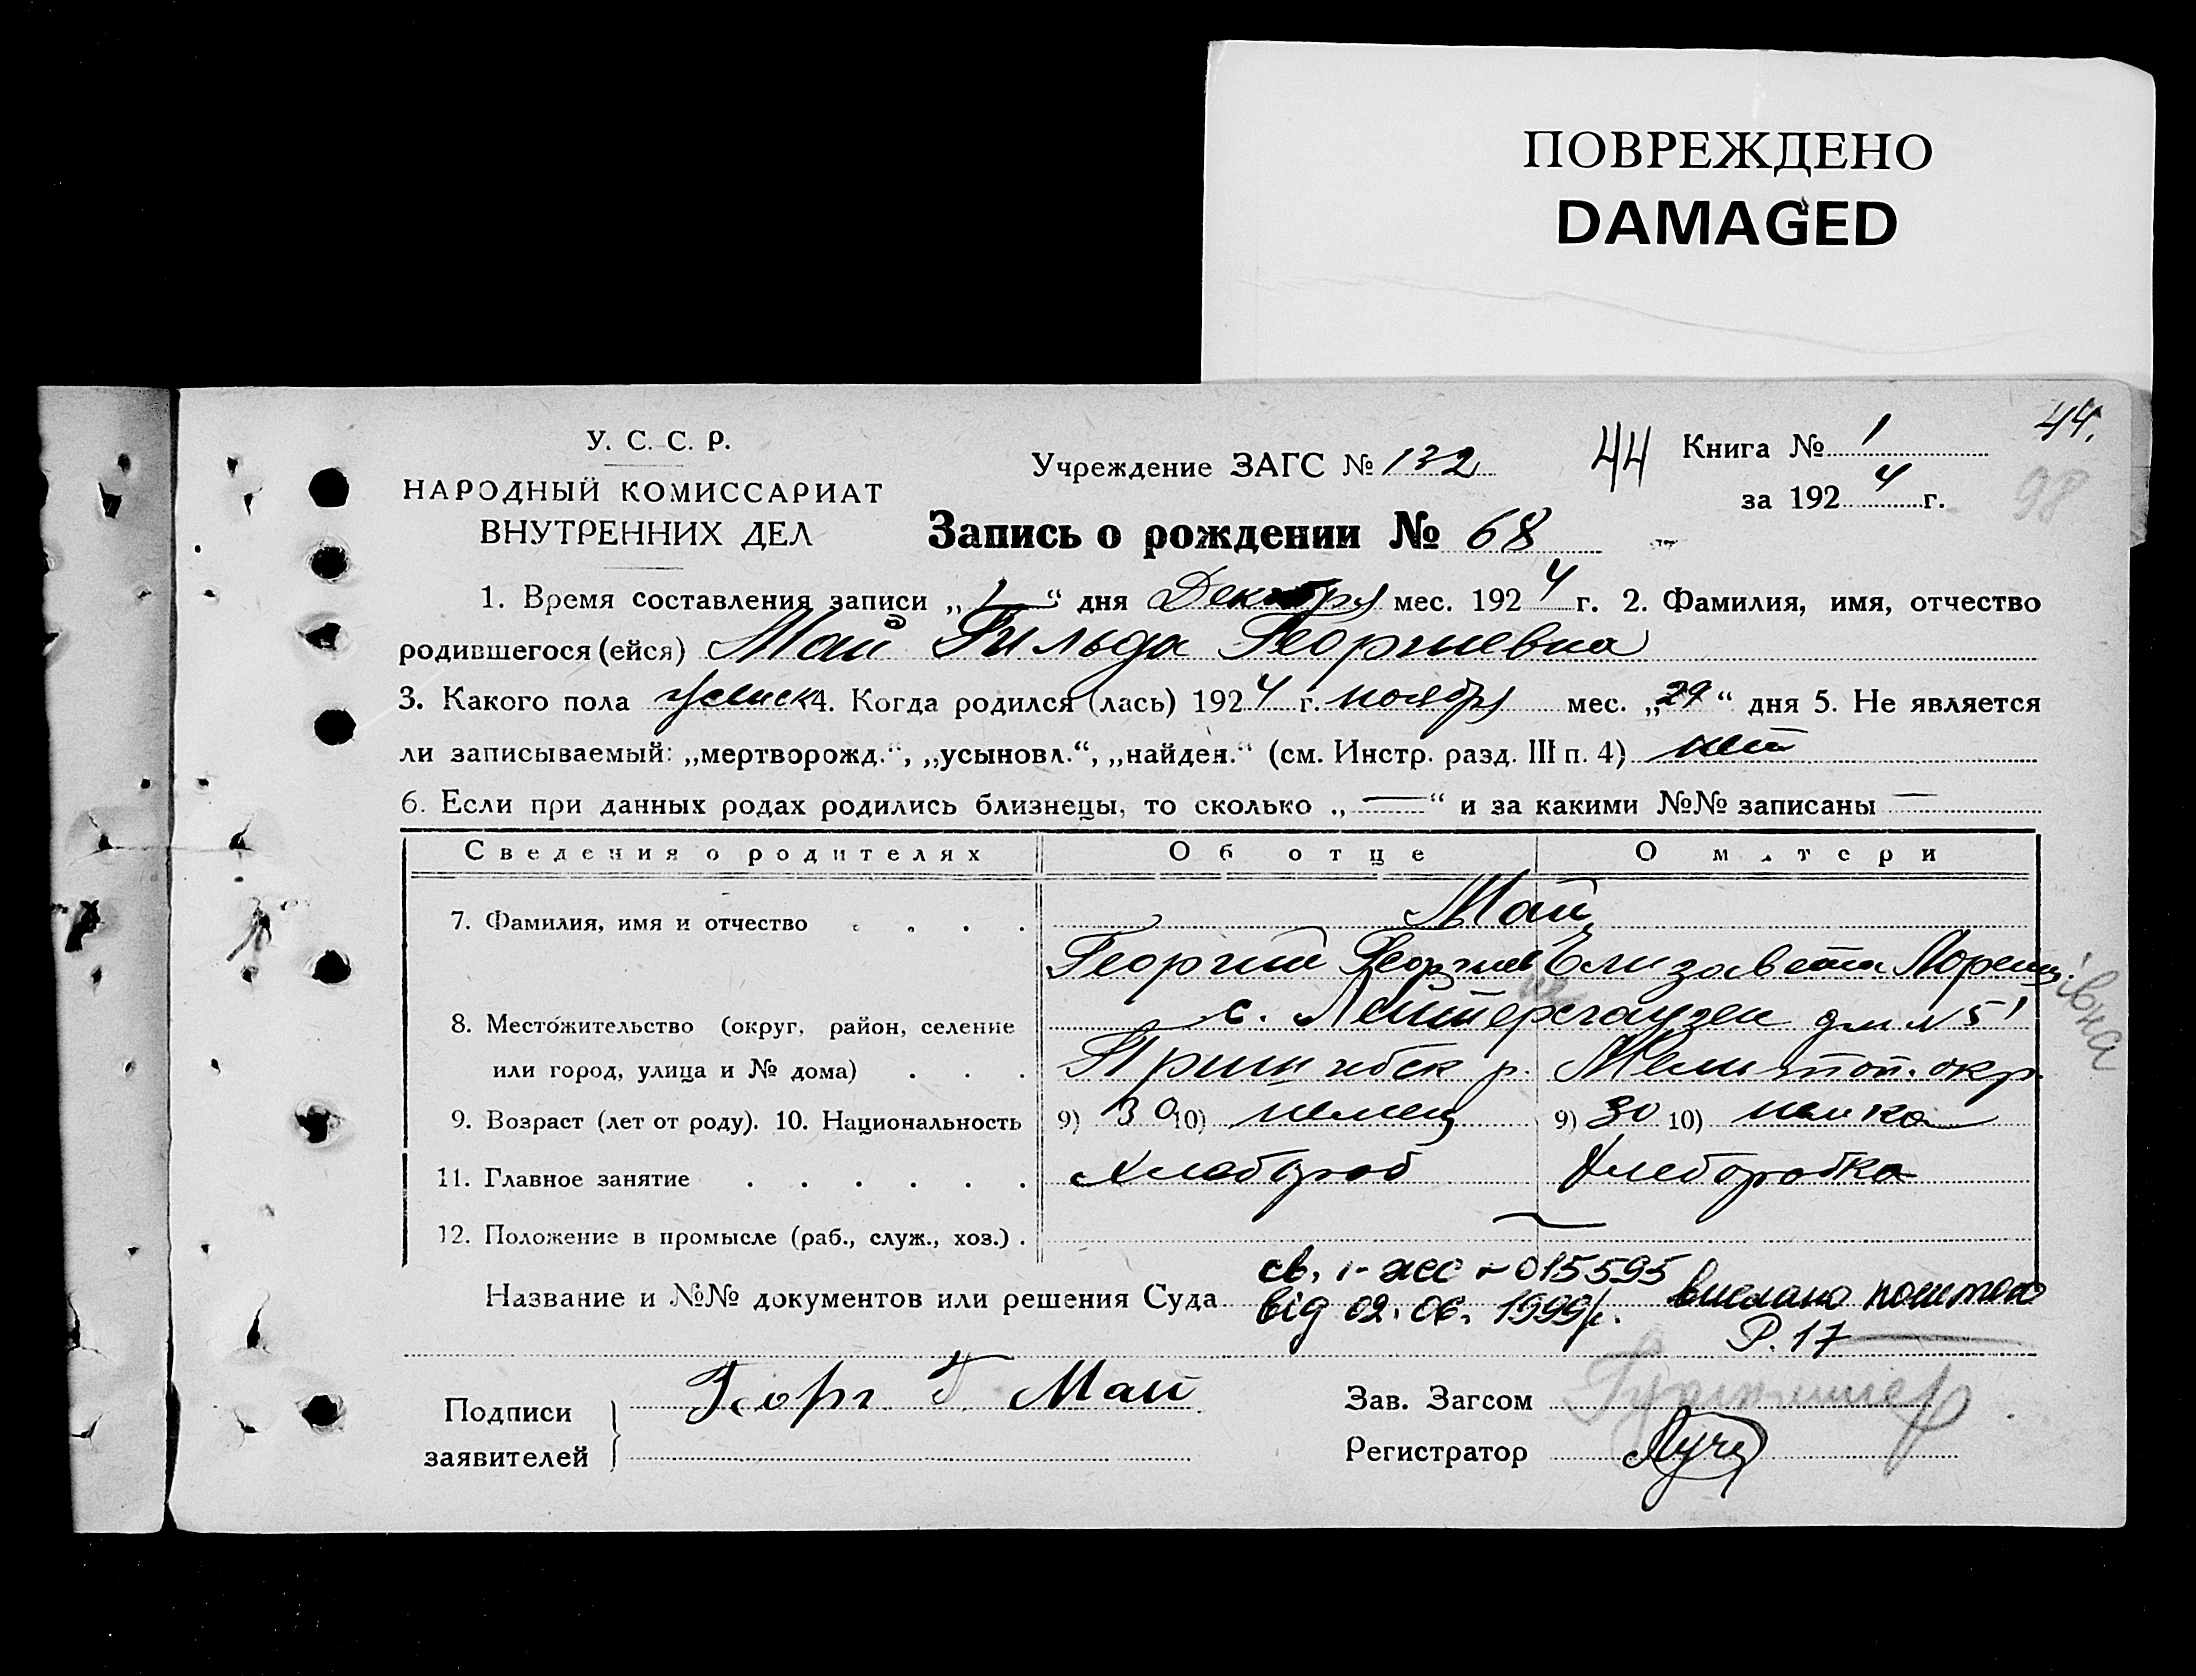 ПОВРЕЖДЕНО
DAMAGED
У. С. С. Р.
НАРОДНЫЙ КОМИССАРИАТ
ВНУТРЕННИХ ДЕЛ
Учреждение ЗАГС № 132
44
Книга № 1
44.
за 1924 г.
98
Запись о рождении № 68
1. Время составления записи „1“ дня Декабря мес. 1924 г. 2. Фамилия, имя, отчество
родившегося (ейся) Май Гильда Георгиевна
3. Какого пола женск 4. Когда родился (лась) 1924 г. ноября мес. „29“ дня 5. Не является
ли записываемый: „мертворожд.“, „усыновл.“, „найден.“ (см. Инстр. разд. III п. 4) нет
6. Если при данных родах родились близнецы, то сколько „—“ и за какими №№ записаны —
Сведения о родителях Об отце О матери
7. Фамилия, имя и отчество . . . . Май
Георгий Георгиев Елизавета Лоренц.
івна
8. Местожительство (округ, район, селение с. Лейтерсгаузен дм № 51
или город, улица и № дома) . . . Пришибск р. Мелитоп. окр.
9. Возраст (лет от роду). 10. Национальность 9) 30 10) немец 9) 30 10) немка
11. Главное занятие . . . . . . Хлебороб Хлеборобка
12. Положение в промысле (раб., служ., хоз.) . —
св. I-ЖС № 015595
Название и №№ документов или решения Суда від 02.06.1999р. вислано поштою
Р. 17
Подписи
заявителей
Георг Г. Май
Зав. Загсом
Регистратор